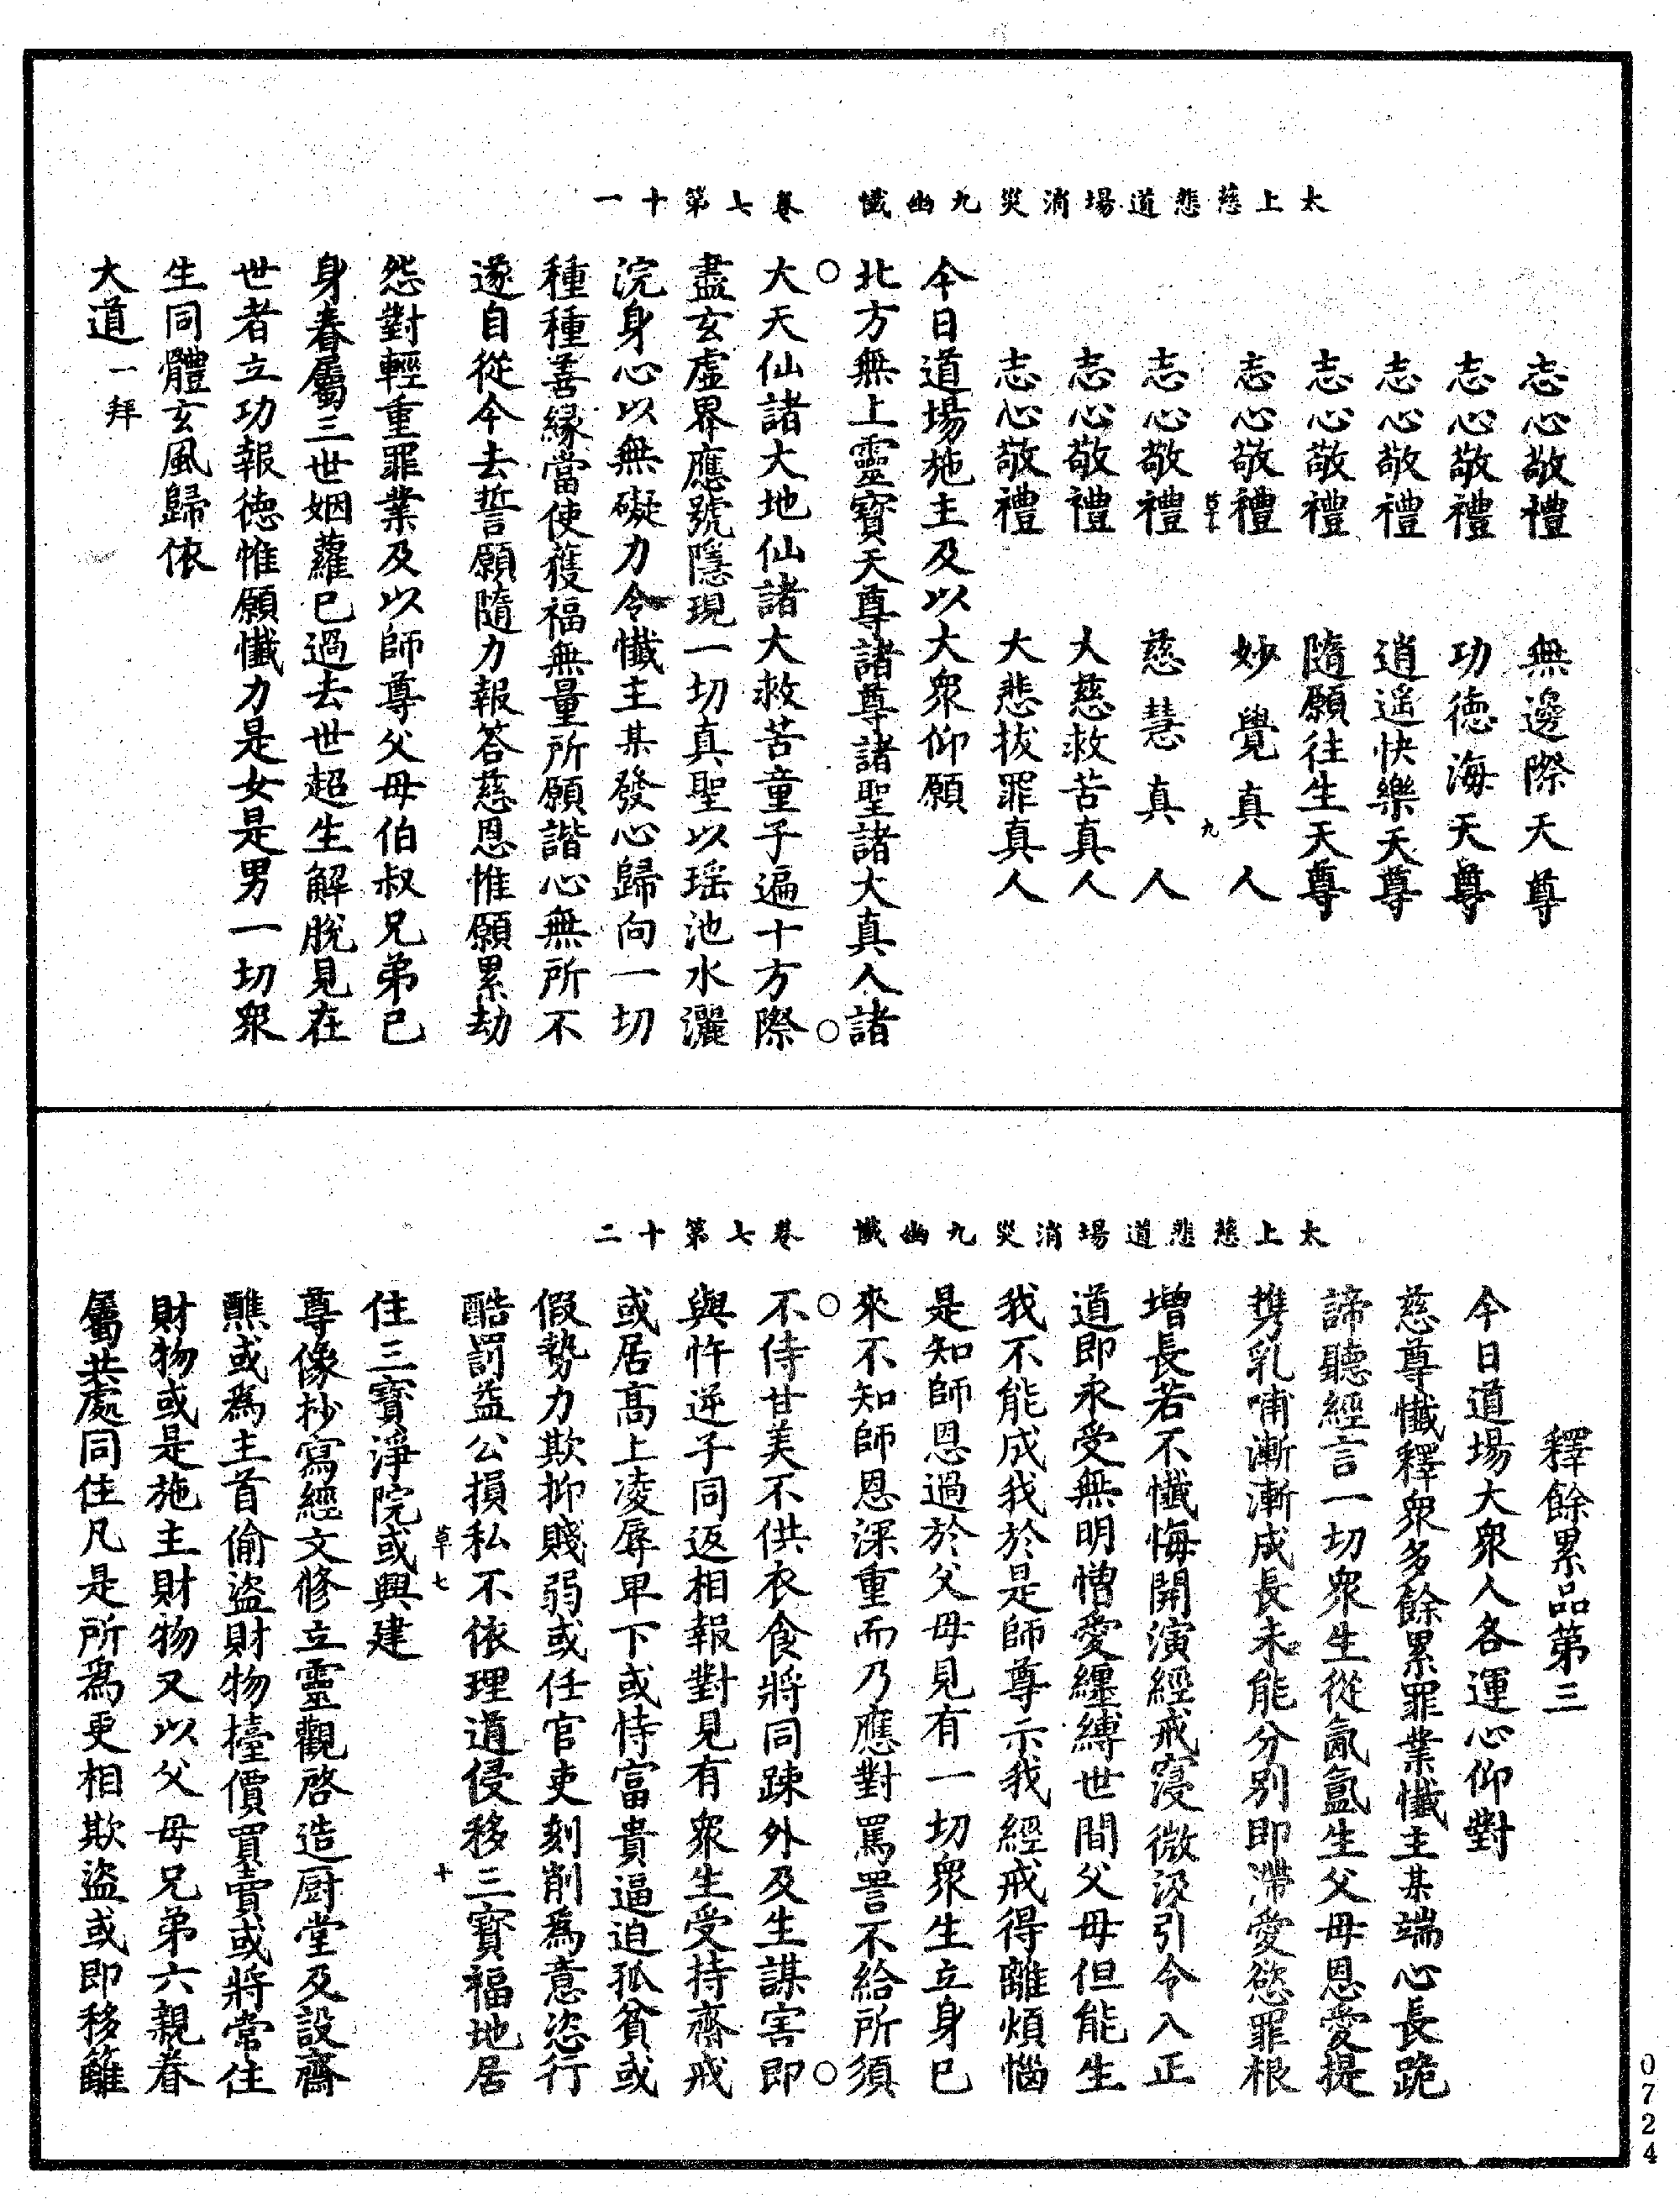 太上慈悲道場消災九幽懺　卷七第十一
志心敬禮　無邊際天尊
志心敬禮　功德海天尊
志心敬禮　逍遥快樂天尊
志心敬禮　隨願往生天尊
志心敬禮　妙覺真人
草　九
志心敬禮　慈慧真人
志心敬禮　大慈救苦真人
志心敬禮　大悲拔罪真人
今日道場施主及以大衆仰願
北方無上靈寶天尊諸尊諸聖諸大真人諸
大天仙諸大地仙諸大救苦童子遍十方際
盡玄虛界應號隱現一切真聖以瑶池水灑
浣身心以無礙力令懺主某發心歸向一切
種種善緣當使獲福無量所願諧心無所不
遂自從今去誓願隨力報答慈恩惟願累劫
怨對輕重罪業及以師尊父母伯叔兄弟已
身眷屬三世姻蘿已過去世超生解脫見在
世者立功報德惟願懺力是女是男一切衆
生同體玄風歸依
大道一拜
太上慈悲道場消災九幽懺　卷七第十二
釋餘累品第三
今日道場大衆人各運心仰對
慈尊懺釋衆多餘累罪業懺主某端心長跪
諦聽經言一切衆生從氤氳生父母恩愛提
携乳哺漸漸成長未能分別即滯愛慾罪根
增長若不懺悔開演經戒寖微汲引令入正
道即永受無明憎愛纏縛世間父母但能生
我不能成我於是師尊示我經戒得離煩惱
是知師恩過於父母見有一切衆生立身已
來不知師恩深重而乃應對罵詈不給所須
不侍甘美不供衣食將同踈外及生謀害即
與忤逆子同返相報對見有衆生受持齋戒
或居高上凌辱卑下或恃富貴逼迫孤貧或
假勢力欺抑賤弱或任官吏刻削爲意恣行
酷罰益公損私不依理道侵移三寶福地居
草七　十
住三寶淨院或興建
尊像抄寫經文修立靈觀啓造厨堂及設齋
醮或爲主首偷盜財物擡價買賣或將常住
財物或是施主財物又以父母兄弟六親眷
屬共處同住凡是所爲更相欺盜或即移籬
0724